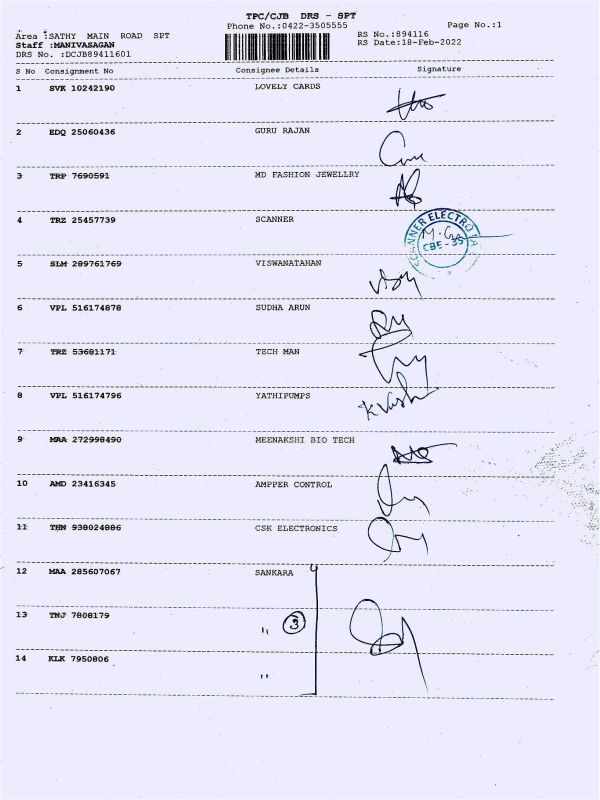 TPC/CJB DRS - SPT
Phone No.:0422-3505555 Page No.:1
Area :SATHY MAIN ROAD SPT RS No.:894116
Staff :MANIVASAGAN RS Date:18-Feb-2022
DRS No. :DCJB89411601
S No Consignment No Consignee Details Signature
1 SVK 10242190 LOVELY CARDS
2 EDQ 25060436 GURU RAJAN
3 TRP 7690591 MD FASHION JEWELLRY
4 TRZ 25457739 SCANNER
SCANNER ELECTRO
CBE-35
5 SLM 289761769 VISWANATAHAN
6 VPL 516174878 SUDHA ARUN
7 TRZ 53681171 TECH MAN
8 VPL 516174796 YATHIPUMPS
9 MAA 272998490 MEENAKSHI BIO TECH
10 AMD 23416345 AMPPER CONTROL
11 THN 938024886 CSK ELECTRONICS
12 MAA 285607067 SANKARA
13 TNJ 7808179 " 3
14 KLK 7950806 "